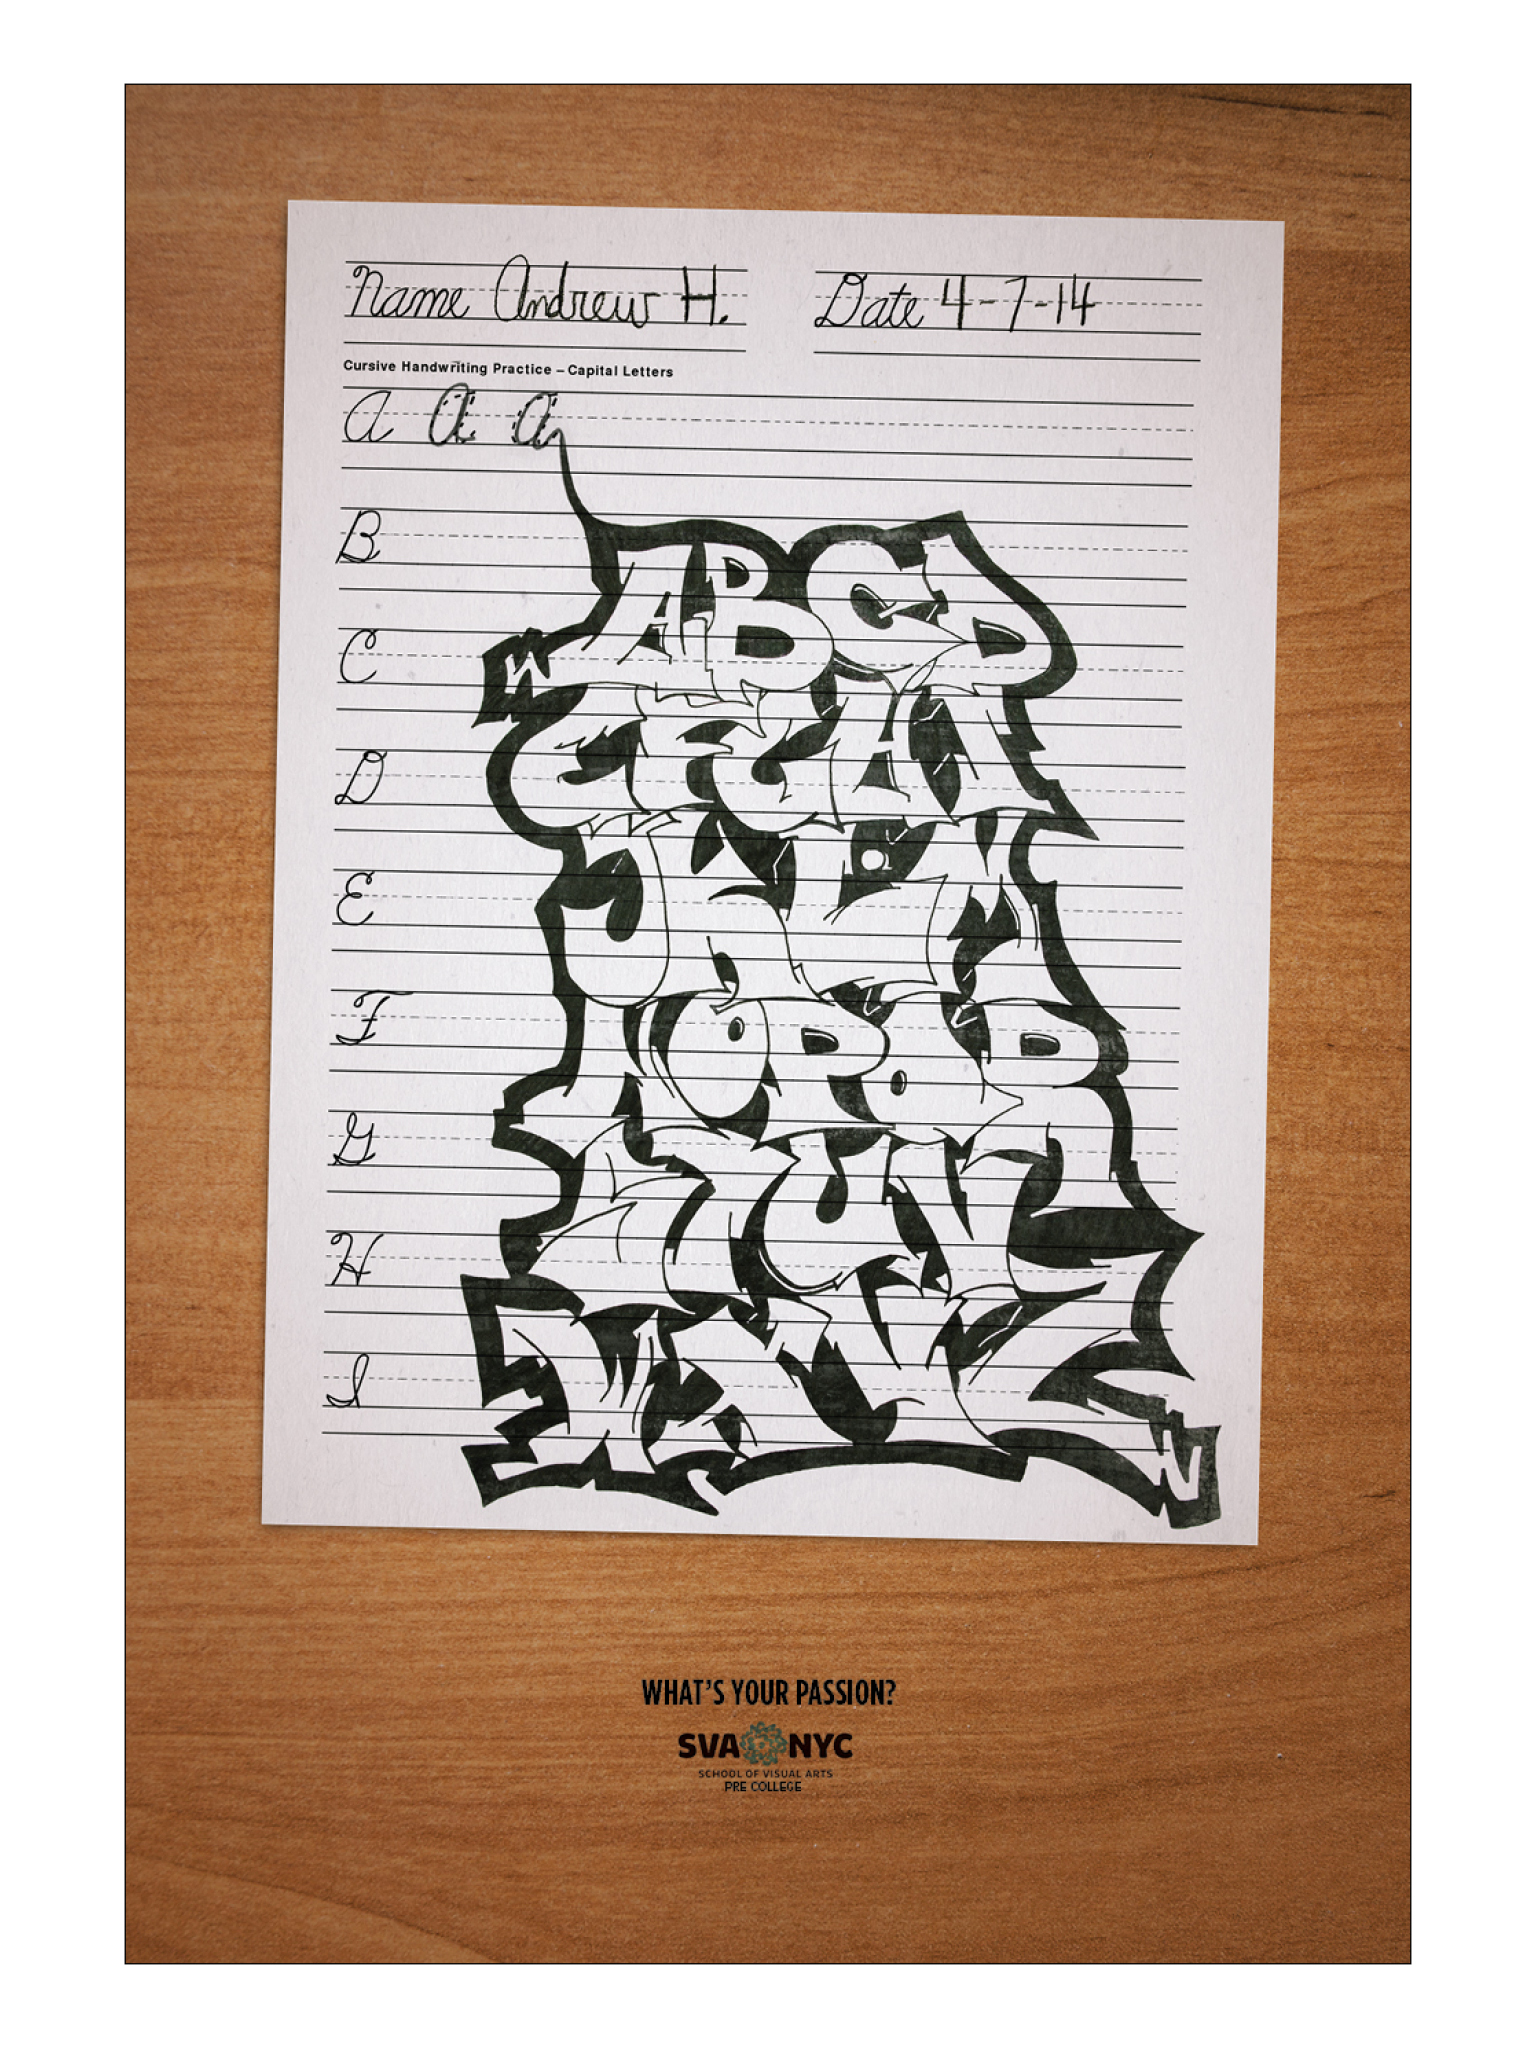 Name Andrew H. Date 4-7-14
Cursive Handwriting Practice – Capital Letters
A a a
B
C
D
E
F
G
H
I
ABCD
EFGHI
JKLM
NOPQR
STUV
WXYZ
WHAT'S YOUR PASSION?
SVA NYC
SCHOOL OF VISUAL ARTS
PRE COLLEGE